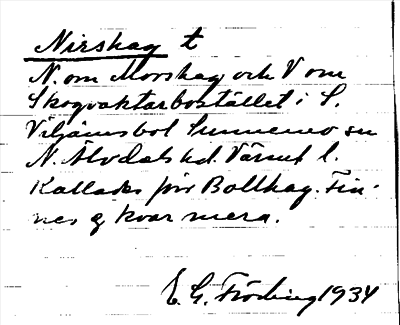 Nirshag t
N. om Morshag och V om
Skogvaktarbostället i S.
Viljamsbol Sunnemo sn
N. Älvdals hd. Värml l.
Kallades för Bollhag. Fin-
nes ej kvar mera.
E. G. Fröding 1934